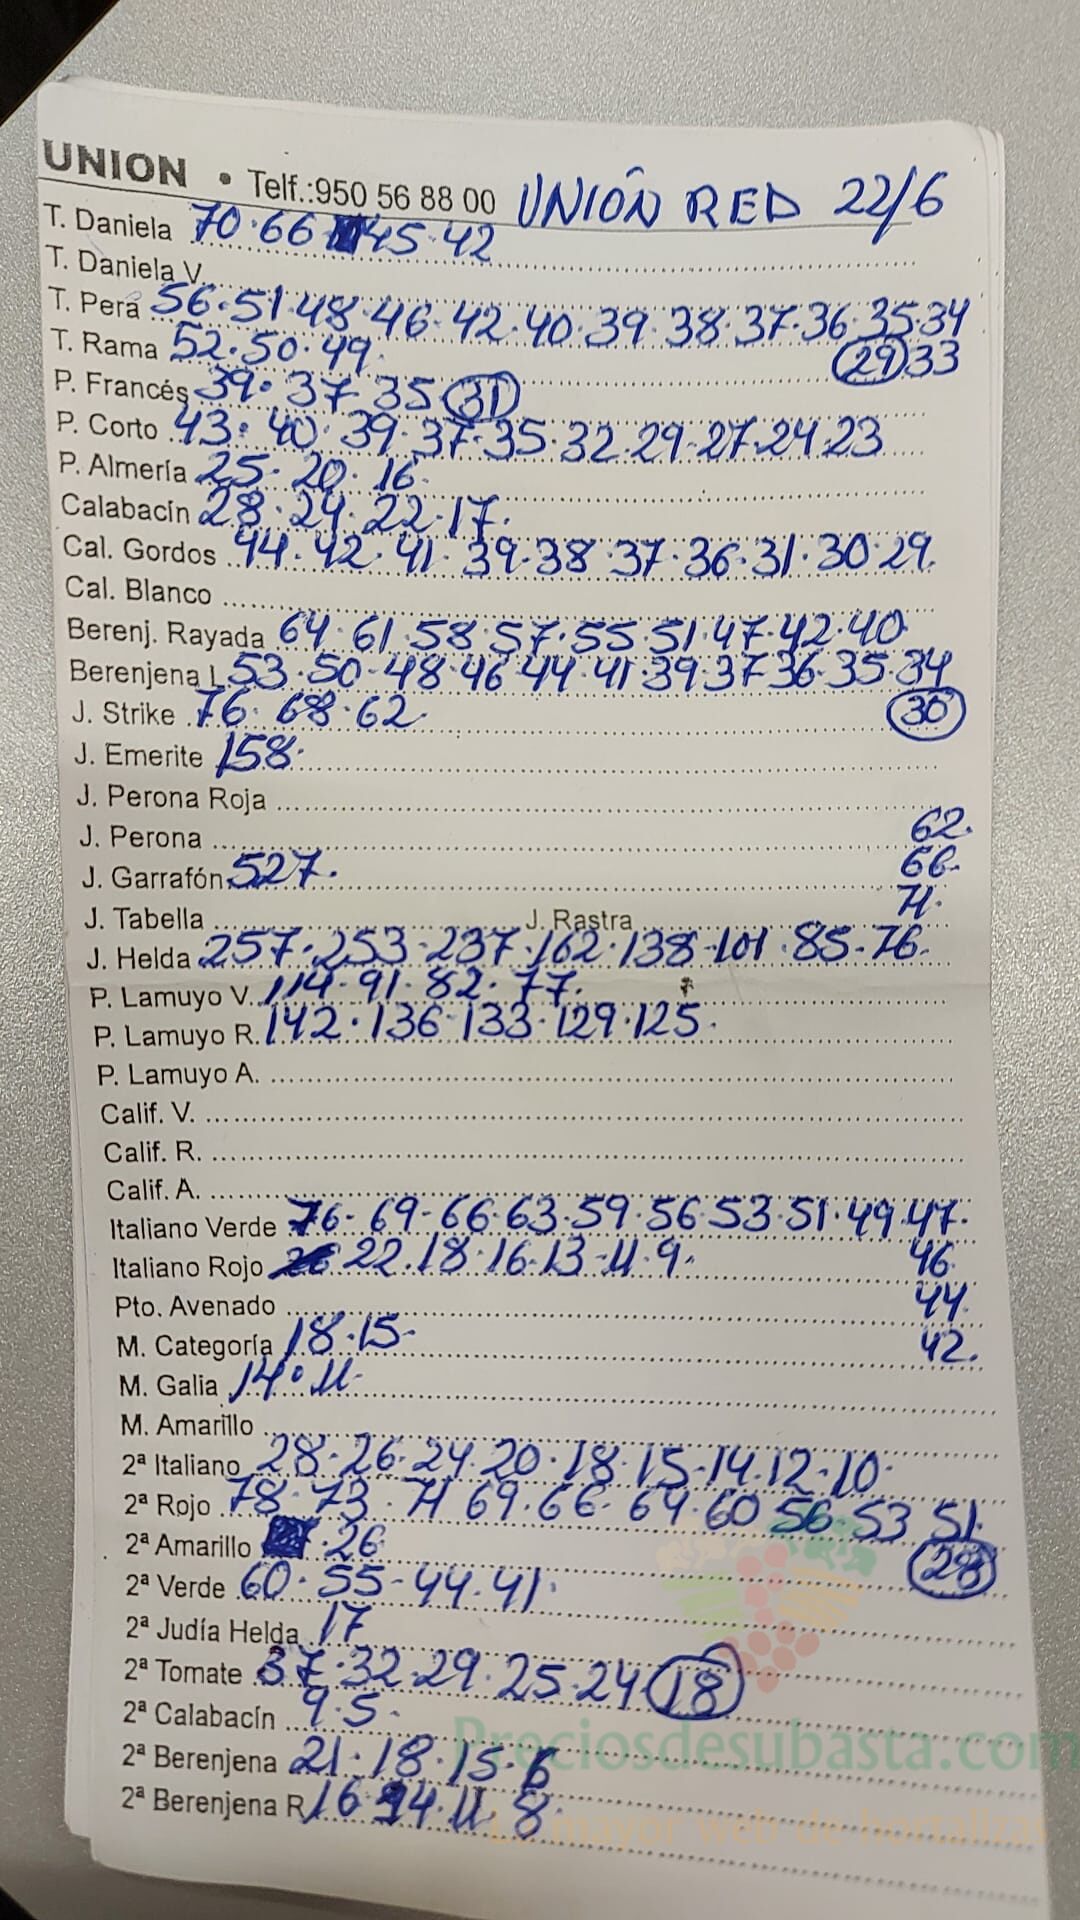 UNION • Telf.:950 56 88 00 UNIÓN RED 22/6
T. Daniela 70·66 45·42
T. Daniela V.
T. Pera 56·51·48·46·42·40·39·38·37·36·35·34
T. Rama 52·50·49· 29 33
P. Francés 39·37·35 31
P. Corto 43·40·39·37·35·32·29·27·24·23
P. Almería 25·20·16·
Calabacín 28·24·22·17·
Cal. Gordos 44·42·41·39·38·37·36·31·30·29.
Cal. Blanco
Berenj. Rayada 64·61·58·57·55·51·47·42·40·
Berenjena L 53·50·48·46·44·41·39·37·36·35·34
J. Strike 76·68·62· 30
J. Emerite 158·
J. Perona Roja
J. Perona 62.
J. Garrafón 527· 66·
J. Tabella J. Rastra 71·
J. Helda 257·253·237·162·138·101·85·76·
P. Lamuyo V. 114·91·82·77·
P. Lamuyo R. 142·136·133·129·125·
P. Lamuyo A.
Calif. V.
Calif. R.
Calif. A.
Italiano Verde 76-69-66·63·59·56·53·51·49·47·
Italiano Rojo 22·18·16·13·11·9· 46
Pto. Avenado 44
M. Categoría 18·15· 42.
M. Galia 14·11·
M. Amarillo
2ª Italiano 28·26·24·20·18·15·14·12·10·
2ª Rojo 78·73·71 69·66·64·60 56·53 51·
2ª Amarillo ·26 28
2ª Verde 60·55-44·41·
2ª Judía Helda 17
2ª Tomate 37·32·29·25·24 18
2ª Calabacín 9·5·
2ª Berenjena 21·18·15·6
2ª Berenjena R 16 14·11 8·
Preciosdesubasta.com
La mayor web de hortalizas